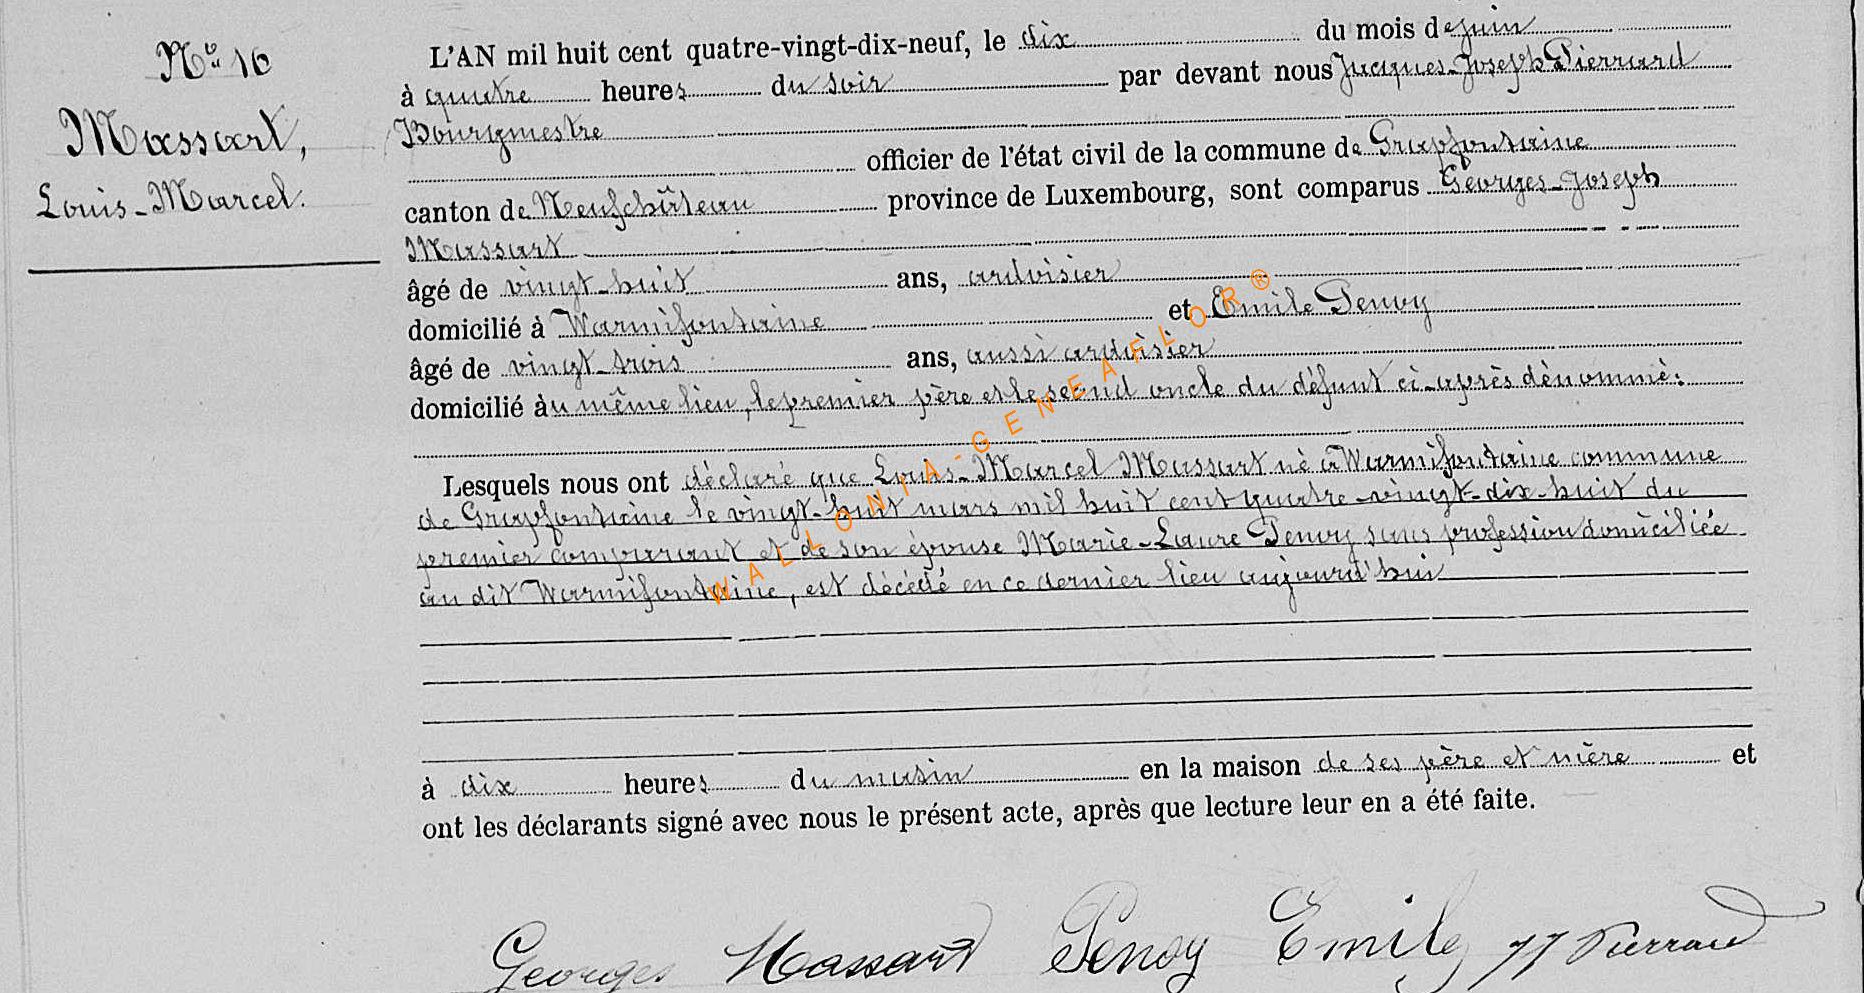 N° 10
Massart,
Louis-Marcel.
L'AN mil huit cent quatre-vingt-dix-neuf, le dix du mois de juin
à quatre heures du soir par devant nous Jacques-Joseph Pierrard
Bourgmestre
officier de l'état civil de la commune de Grapfontaine
canton de Neufchâteau province de Luxembourg, sont comparus Georges-Joseph
Massart
âgé de vingt-huit ans, ardoisier
domicilié à Warmifontaine et Emile Penoy
âgé de vingt-trois ans, aussi ardoisier
domicilié au même lieu, le premier père et le second oncle du défunt ci-après dénommé:
Lesquels nous ont déclaré que Louis-Marcel Massart né à Warmifontaine commune
de Grapfontaine le vingt-huit mars mil huit cent quatre-vingt-dix-huit du
premier comparant et de son épouse Marie-Laure Penoy sans profession domiciliée
au dit Warmifontaine, est décédé en ce dernier lieu aujourd'hui
à dix heures du matin en la maison de ses père et mère et
ont les déclarants signé avec nous le présent acte, après que lecture leur en a été faite.
Georges Massart Penoy Emile JJ Pierrard
WALLONIA-GENEAFLOR®